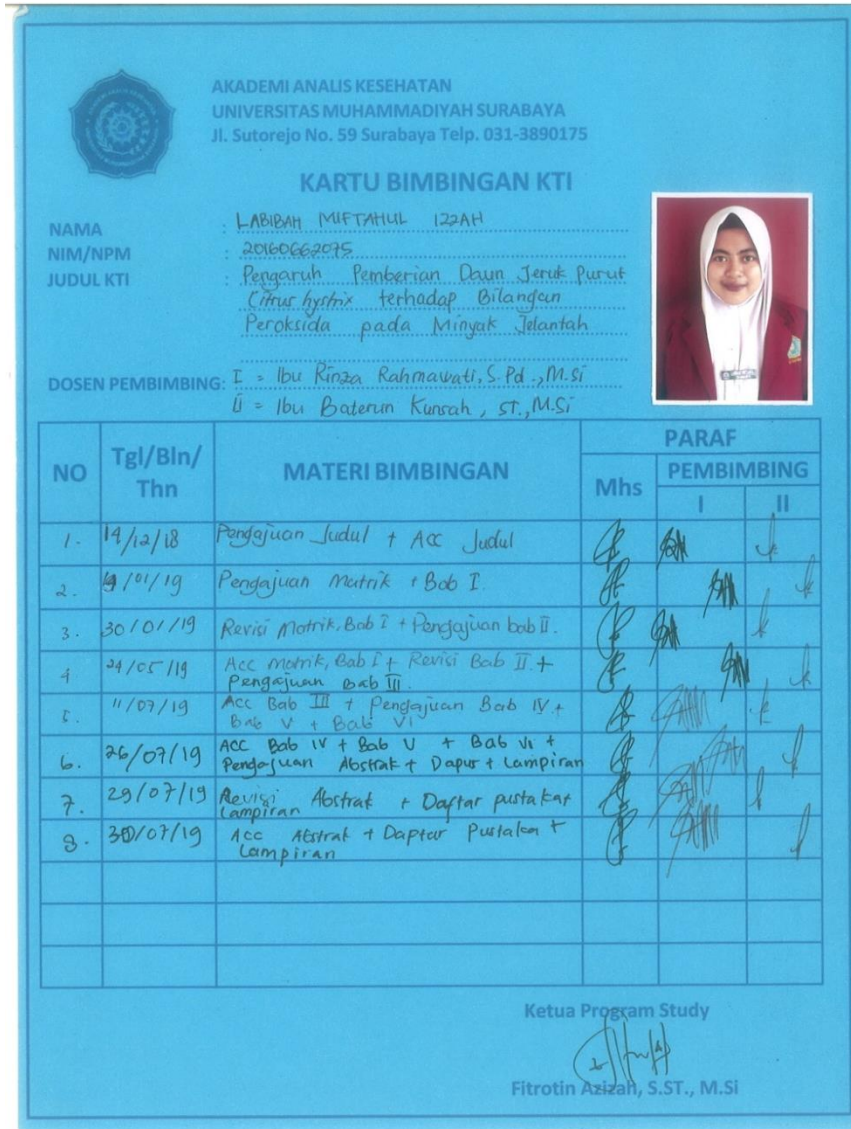 AKADEMI ANALIS KESEHATAN
UNIVERSITAS MUHAMMADIYAH SURABAYA
Jl. Sutorejo No. 59 Surabaya Telp. 031-3890175
KARTU BIMBINGAN KTI
NAMA : LABIBAH MIFTAHUL IZZAH
NIM/NPM : 20160662075
JUDUL KTI : Pengaruh Pemberian Daun Jeruk Purut
Citrus hystrix terhadap Bilangan
Peroksida pada Minyak Jelantah
DOSEN PEMBIMBING: I = Ibu Rinza Rahmawati, S.Pd., M.Si
II = Ibu Baterun Kunsah, ST., M.Si
NO Tgl/Bln/Thn MATERI BIMBINGAN PARAF
Mhs PEMBIMBING
I II
1. 14/12/18 Pengajuan Judul + Acc Judul
2. /01/19 Pengajuan Matrik + Bab I.
3. 30/01/19 Revisi Matrik, Bab I + Pengajuan bab II.
4 24/05/19 Acc Matrik, Bab I + Revisi Bab II. +
Pengajuan Bab III.
5. 11/07/19 Acc Bab III + Pengajuan Bab IV +
Bab V + Bab VI
6. 26/07/19 ACC Bab IV + Bab V + Bab VI +
Pengajuan Abstrak + Dapus + Lampiran
7. 29/07/19 Revisi Abstrak + Daftar pustaka +
Lampiran
8. 30/07/19 Acc Abstrak + Daptar Pustaka +
Lampiran
Ketua Program Study
Fitrotin Azizah, S.ST., M.Si